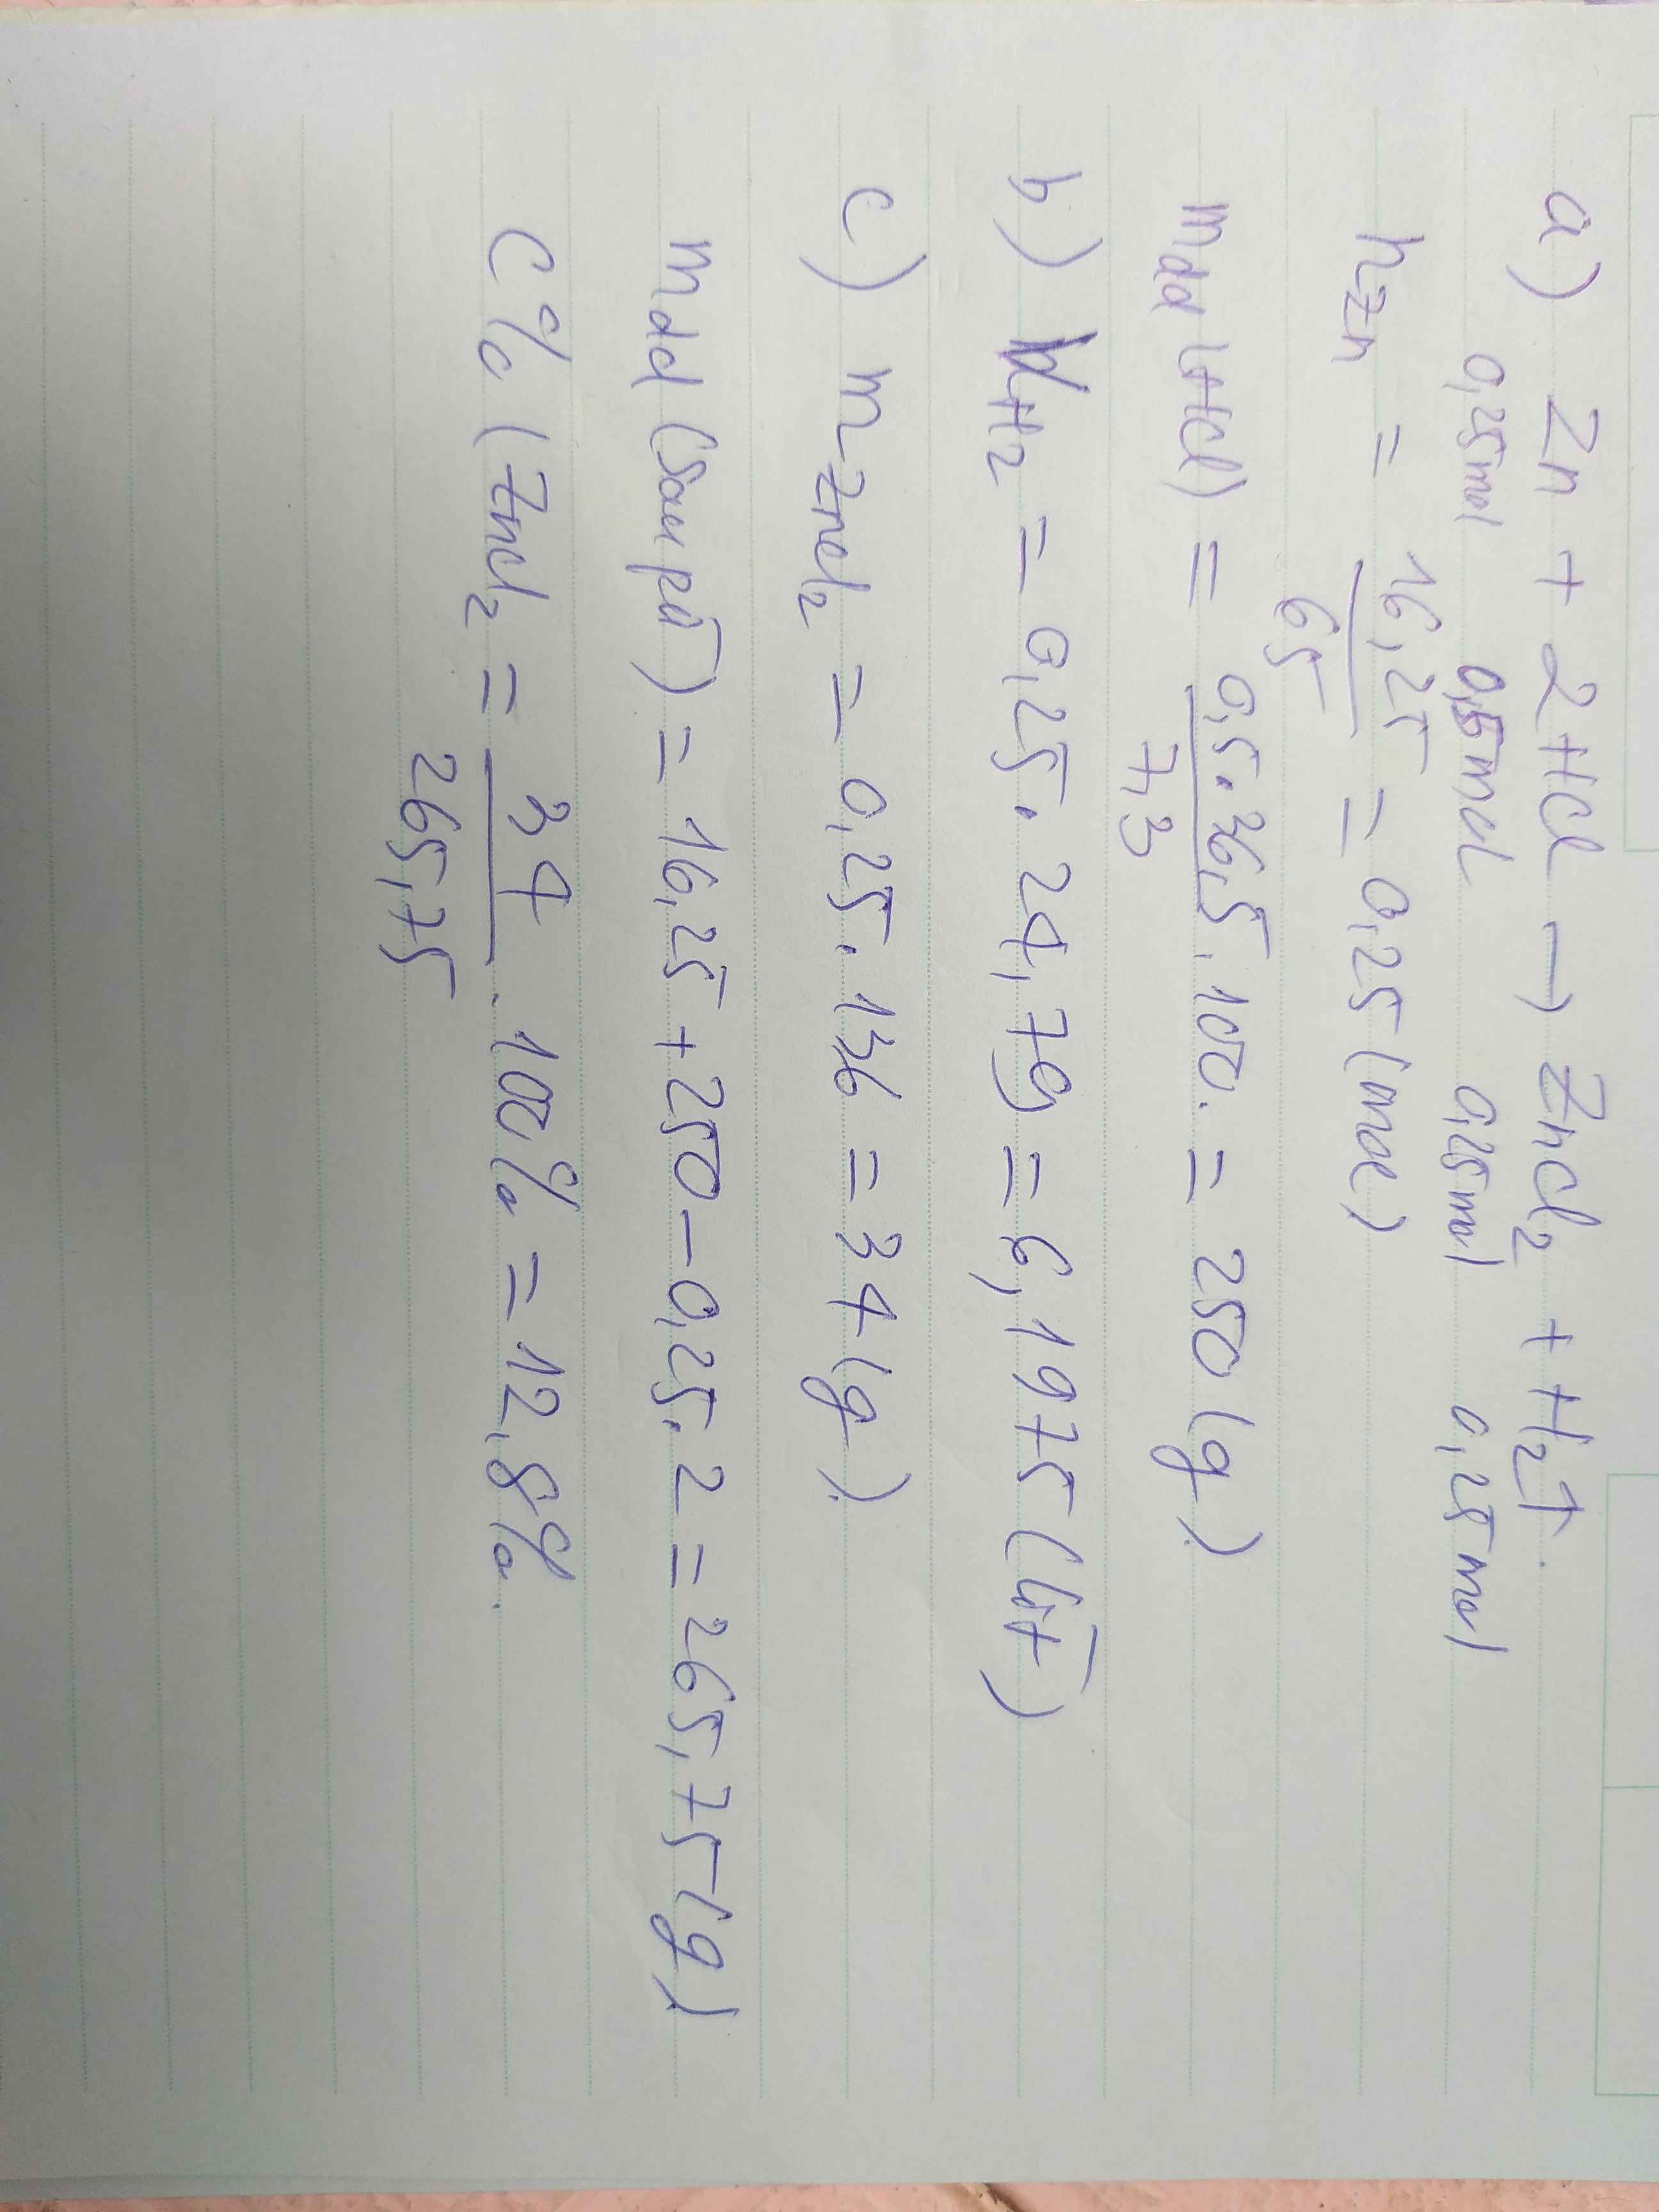 a) Zn + 2HCl → ZnCl₂ + H₂↑.
0,25mol 0,5mol 0,25mol 0,25mol
nZn = 16,25/65 = 0,25 (mol)
mdd (HCl) = 0,5.36,5.100/7,3 = 250 (g).
b) VH₂ = 0,25.24,79 = 6,1975 (lít)
c) mZnCl₂ = 0,25.136 = 34 (g).
mdd (sau pứ) = 16,25 + 250 – 0,25.2 = 265,75 (g).
C% (ZnCl₂ = 34/265,75 . 100% = 12,8%.